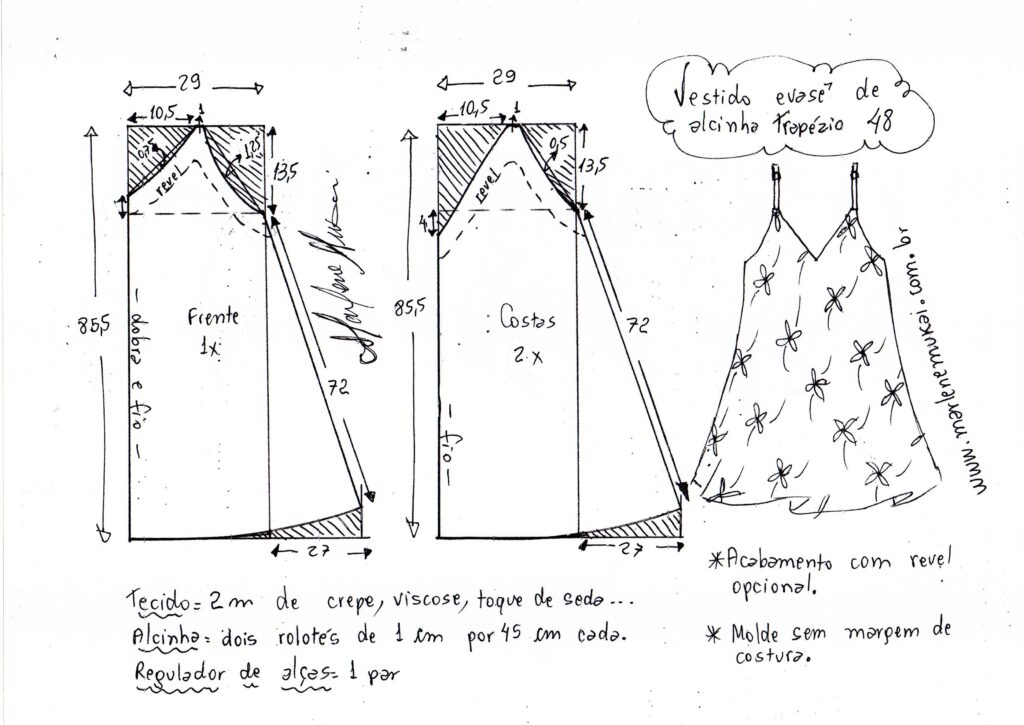 Vestido evasê de
alcinha trapézio 48
29
10,5
1
0,75
1,75
revel
13,5
85,5
dobra e fio
Frente
1x
72
27
Marlene Mukai
29
10,5
1
0,5
revel
13,5
4
85,5
fio
Costas
2x
72
27
www.marlenemukai.com.br
*Acabamento com revel
opcional.
* Molde sem margem de
costura.
Tecido= 2 m de crepe, viscose, toque de seda...
Alcinha= dois rolotês de 1 cm por 45 cm cada.
Regulador de alças= 1 par